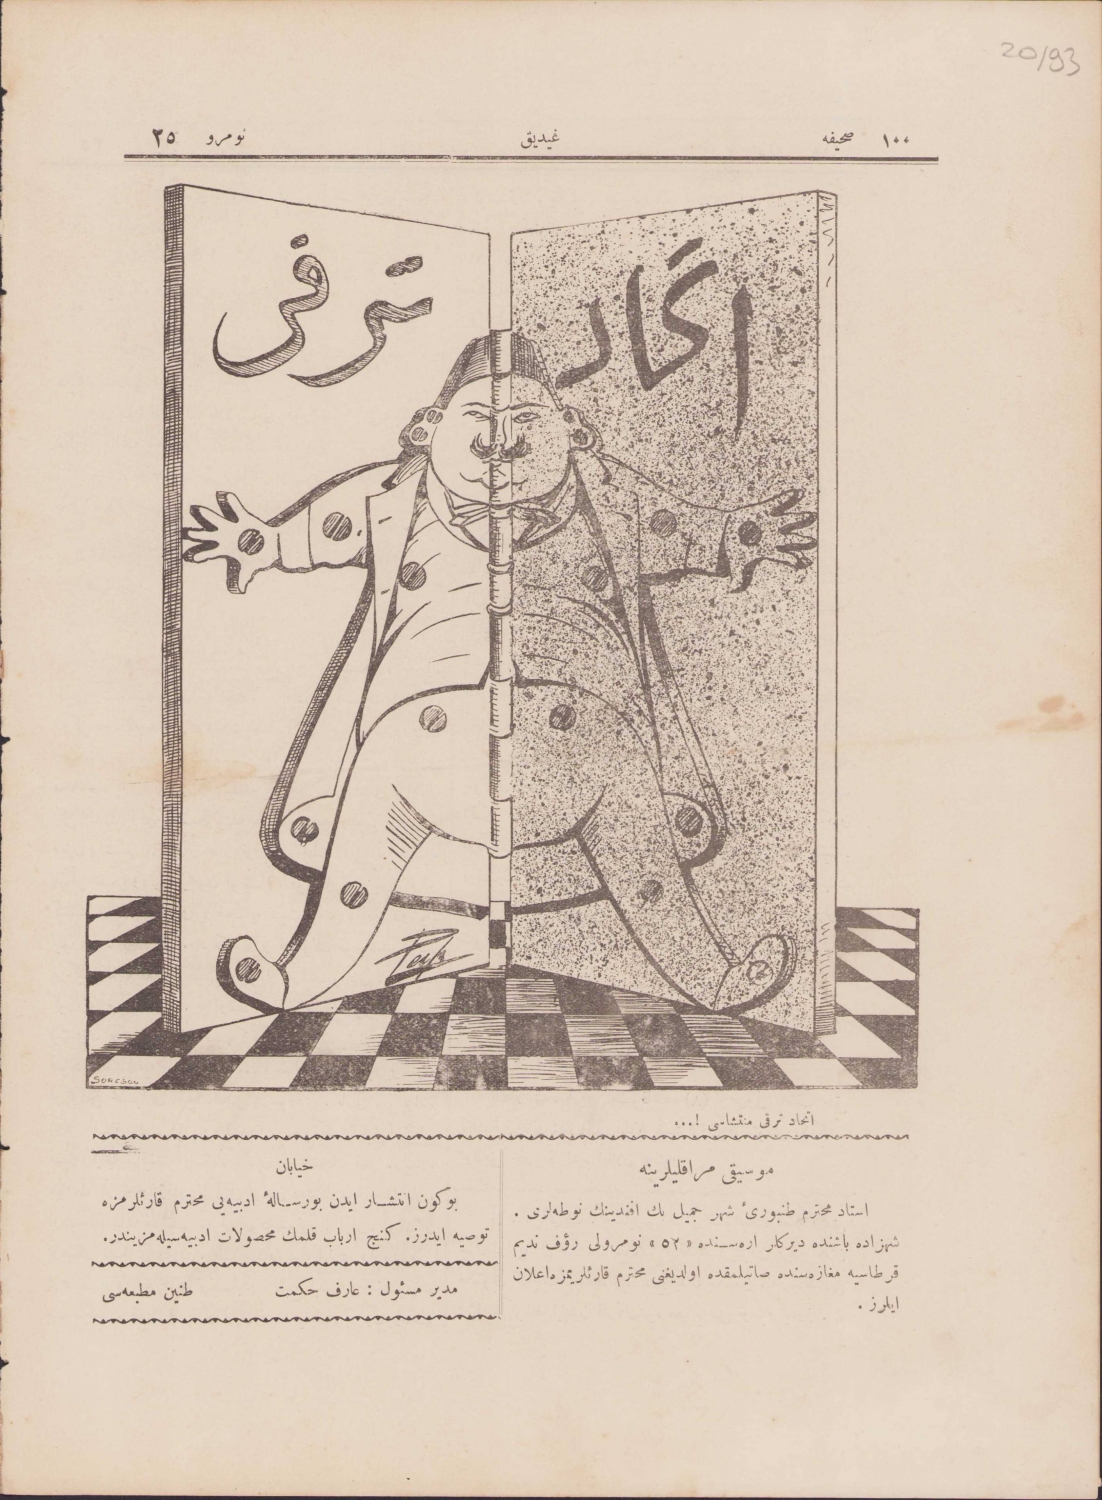 20/93
١٠٠ صحيفه
غيديق
نومرو ٢٥
اتحاد
ترقى
SORESCO
اتحاد ترقى منتشاسى !...
موسيقى مراقليلرينه
استاد محترم طنبورىء شهر جميل بك افندينك نوطه‌لرى .
شهزاده باشنده ديركلر اره‌سنده « ٥٢ » نومرولى رؤف نديم
قرطاسيه مغازه‌سنده صاتيلمقده اولديغنى محترم قارئلريمزه اعلان
ايلرز .
خيابان
بوكون انتشار ايدن بورسالهٔ ادبيه‌يى محترم قارئلرمزه
توصيه ايدرز. كنج ارباب قلمك محصولات ادبيه‌سيله مزيندر.
مدير مسئول : عارف حكمت
طنين مطبعه‌سى